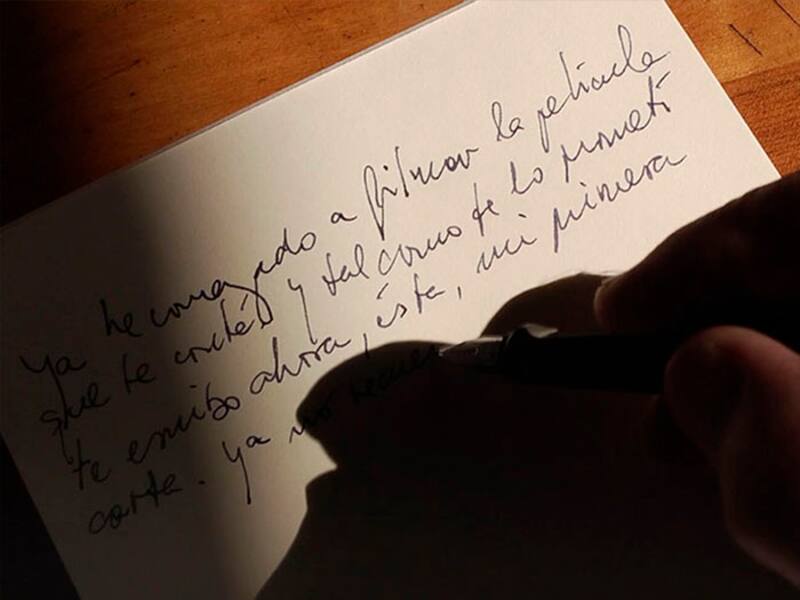 Ya he comenzado a filmar la película
que te conté y tal como te lo prometí
te escribo ahora, ésta, mi primera
carta. Ya no recuer